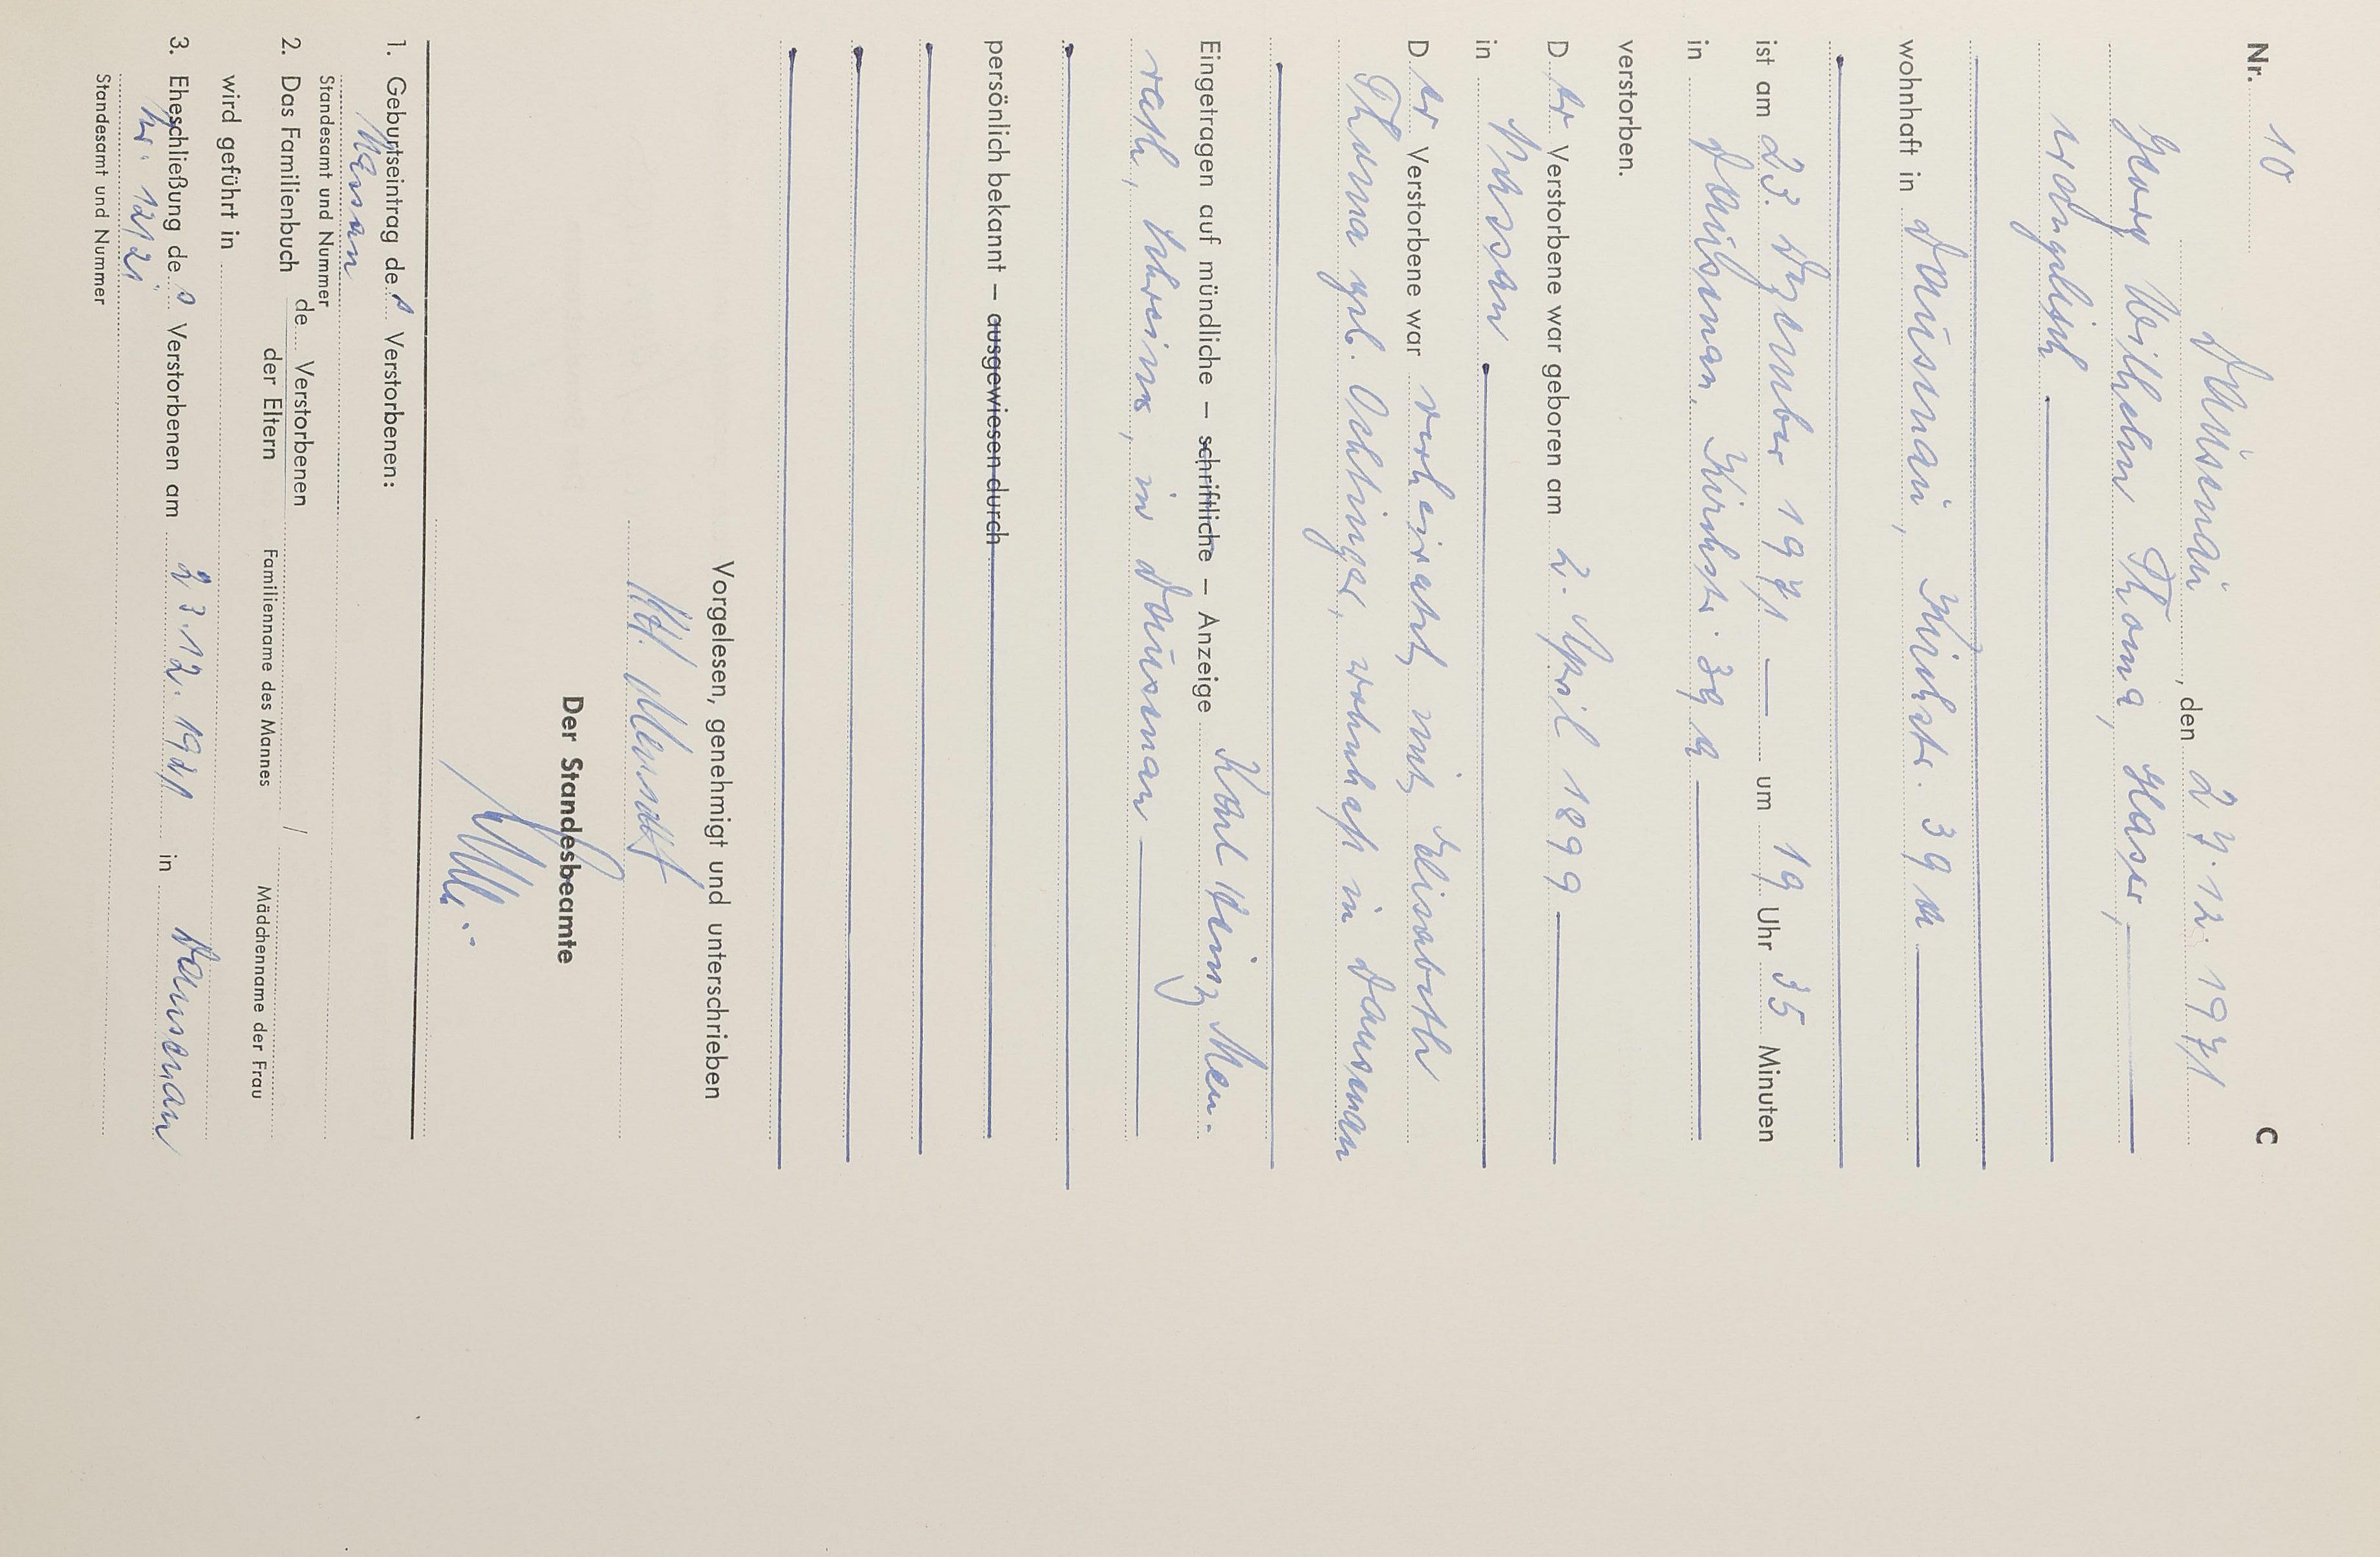 Nr. 10 C
Dausenau, den 27.12.1971
Georg Wilhelm Thoma, Glaser,
evangelisch
wohnhaft in Dausenau, Kirchstr. 39 a
ist am 23. Dezember 1971 — um 19 Uhr 35 Minuten
in Dausenau, Kirchstr. 39 a
verstorben.
Der Verstorbene war geboren am 2. April 1899
in Nassau
Der Verstorbene war verheiratet mit Elisabeth
Thoma geb. wohnhaft in Dausenau
Eingetragen auf mündliche – schriftliche – Anzeige Karl Heinz Men-
rath, Schreiner, in Dausenau
persönlich bekannt – ausgewiesen durch
Vorgelesen, genehmigt und unterschrieben
Der Standesbeamte
1. Geburtseintrag des Verstorbenen:
Nassau
Standesamt und Nummer
2. Das Familienbuch de Verstorbenen
der Eltern Familienname des Mannes / Mädchenname der Frau
wird geführt in
3. Eheschließung des Verstorbenen am 23.12.1921 in Dausenau
Nr. 12/21
Standesamt und Nummer